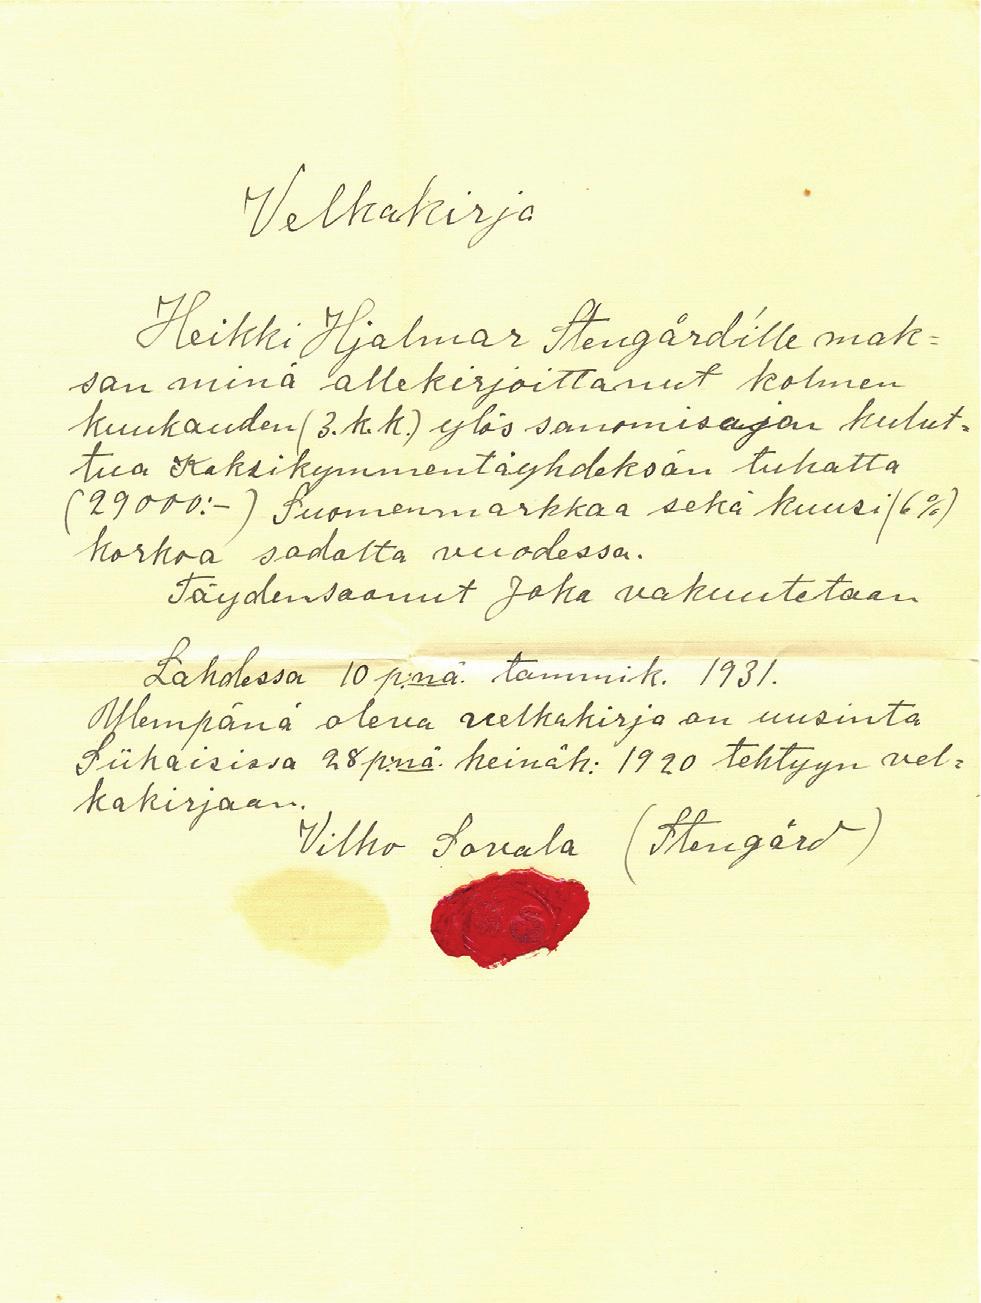 Velkakirja
Heikki Hjalmar Stengård'ille mak=
san minä allekirjoittanut kolmen
kuukauden (3.k.k.) ylös sanomisajan kulut=
tua Kaksikymmentäyhdeksän tuhatta
(29000:-) Suomenmarkkaa sekä kuusi (6%)
korkoa sadalta vuodessa.
Täydensaanut Joka vakuutetaan
Lahdessa 10 p:nä. tammik. 1931.
Ylempänä oleva velkakirja on uusinta
Siikaisissa 28 p:nä. heinäk: 1920 tehtyyn vel=
kakirjaan.
Vilho Sovala (Stengård)